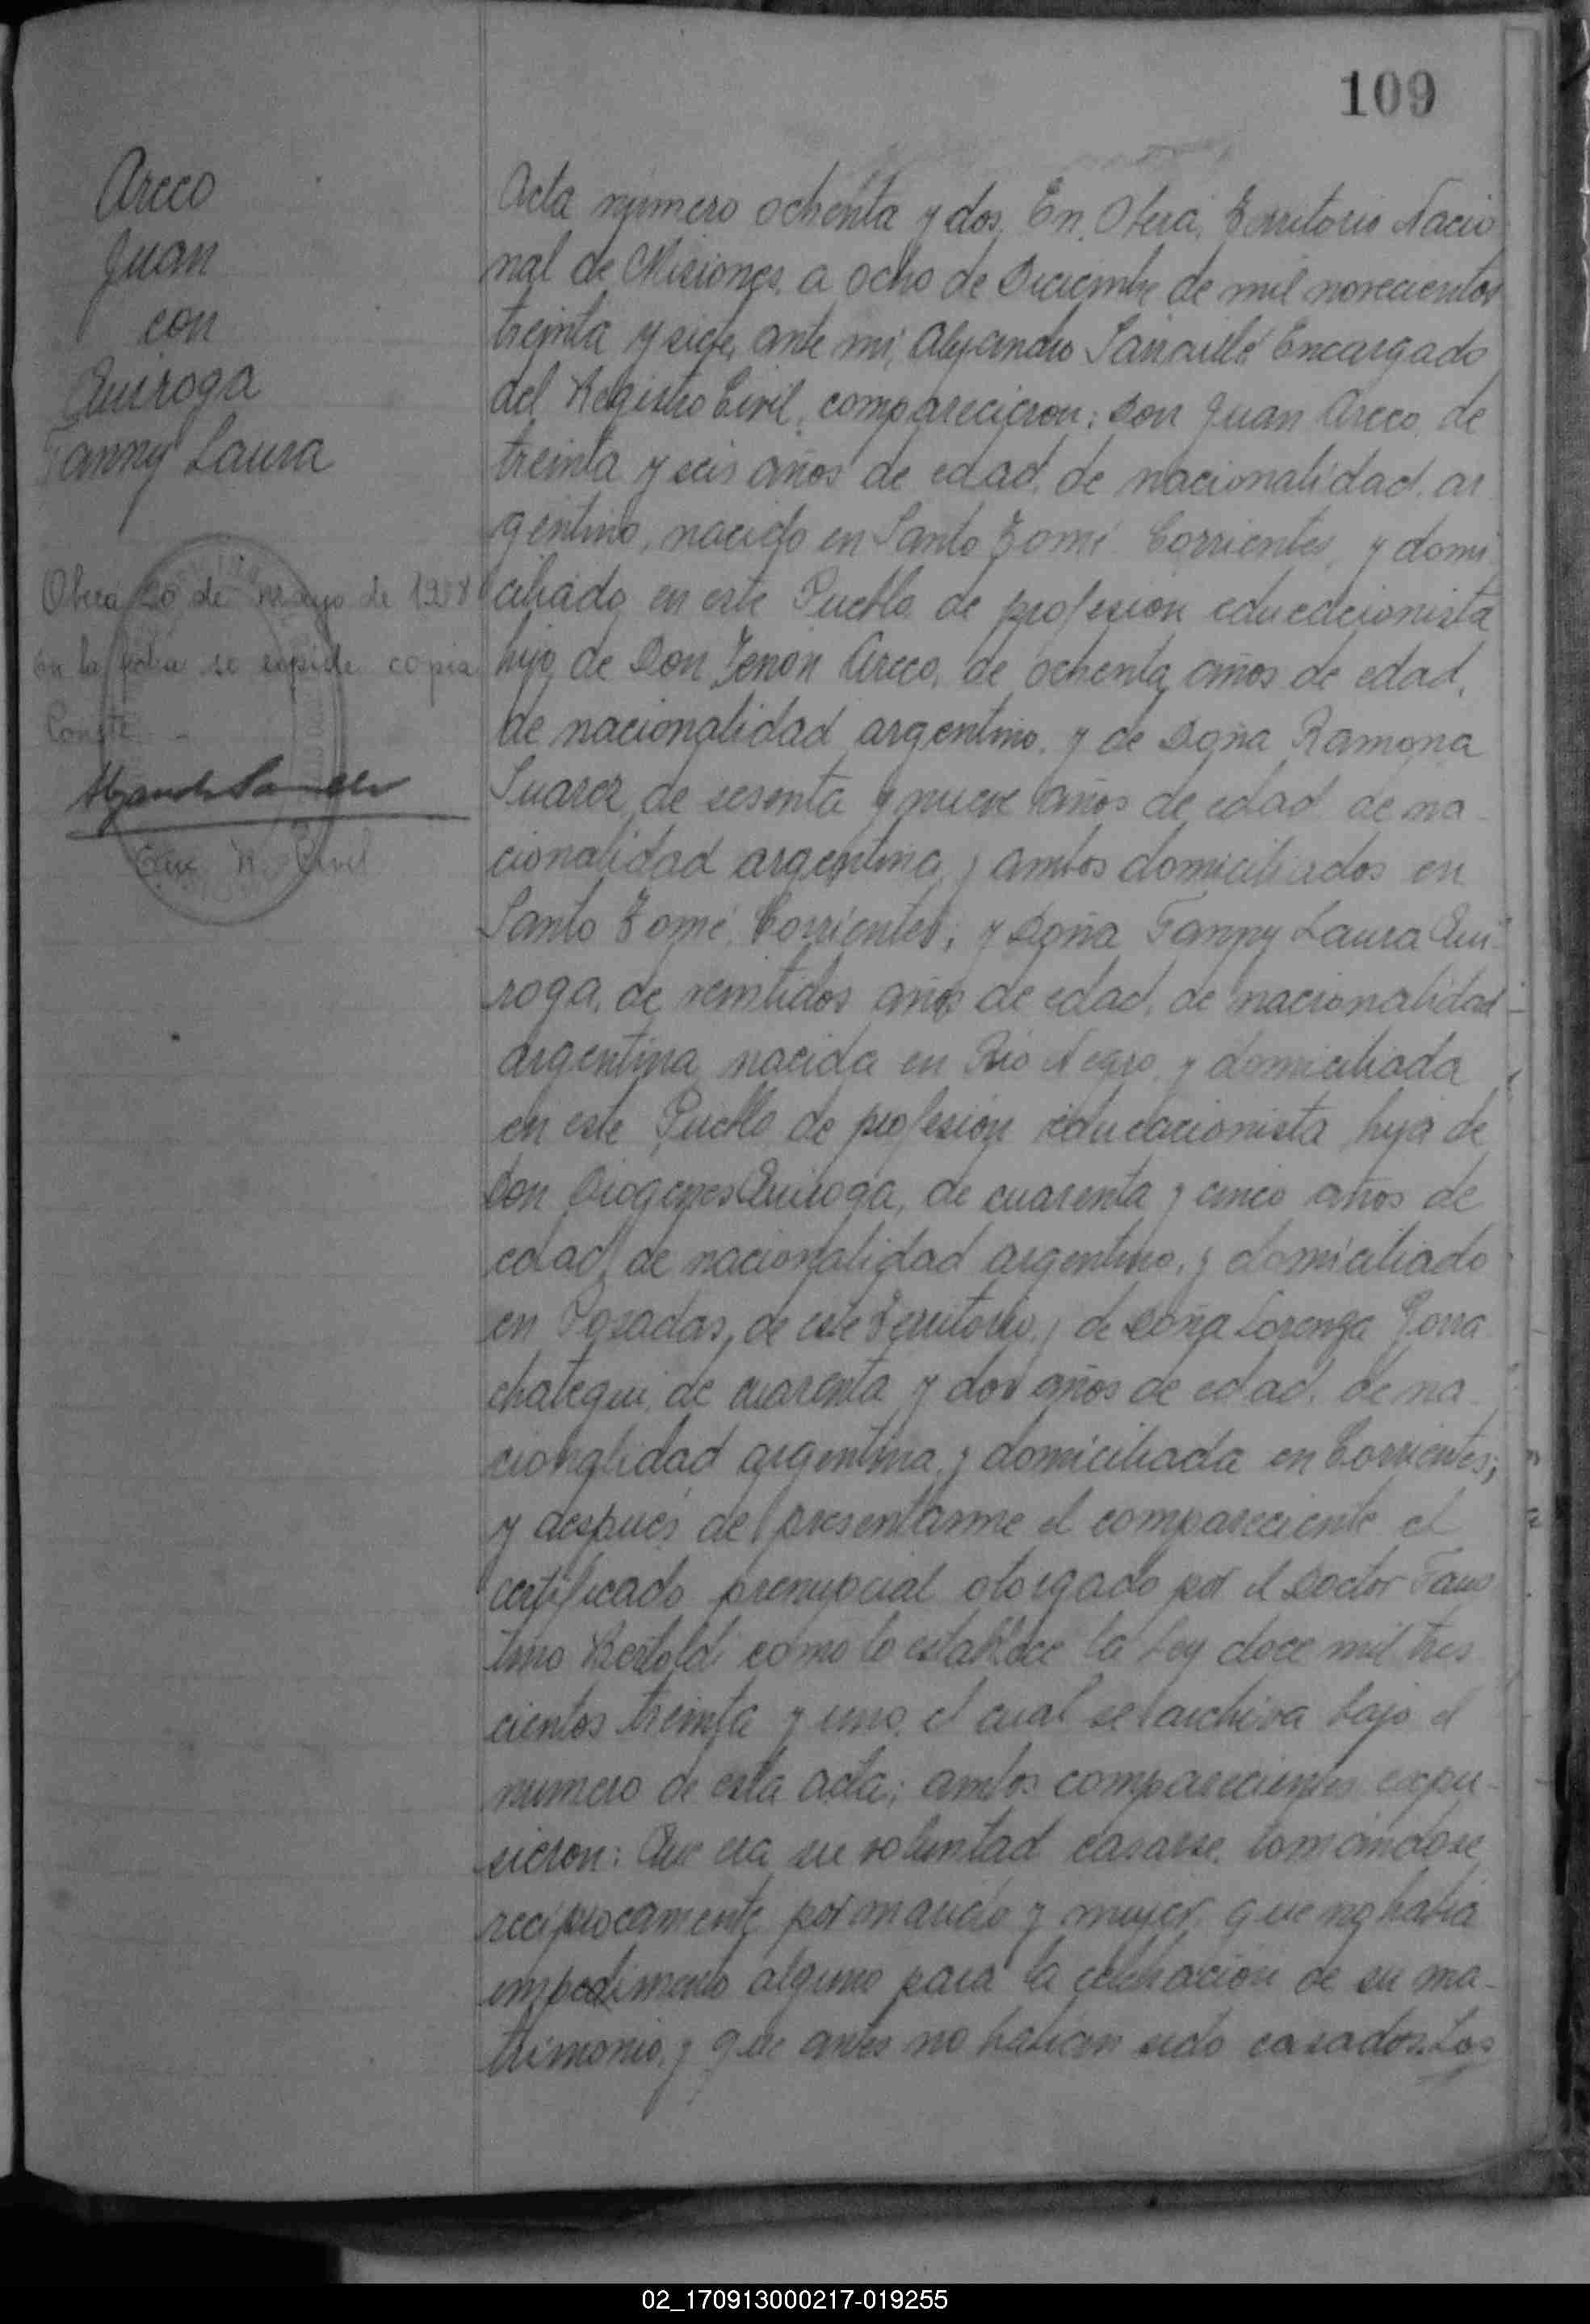 109
Areco
Juan
con
Quiroga
Fanny Laura
Oberá 20 de mayo de 1938
en la fecha se expide copia
Conste.-
R. Civil
Acta número ochenta y dos. En Oberá, Territorio Nacio
nal de Misiones, a ocho de Diciembre de mil novecientos
treinta y siete, ante mi, Alejandro Encargado
del Registro Civil, comparecieron: Don Juan Areco, de
treinta y seis años de edad, de nacionalidad, ar
gentino, nacido en Santo Tomé Corrientes, y domi
ciliado en este Pueblo de profesión educacionista
hijo de Don Zenon Areco, de ochenta años de edad,
de nacionalidad argentino, y de Doña Ramona
Suarez, de sesenta y nueve años de edad de na-
cionalidad argentina, y ambos domiciliados en
Santo Tomé, Corrientes; y Doña Fanny Laura Qui-
roga, de veintidos años de edad, de nacionalidad
argentina, nacida en Rio Negro, y domiciliada
en este Pueblo de profesión educacionista hija de
Don Diogenes Quiroga, de cuarenta y cinco años de
edad, de nacionalidad argentino, y domiciliado
en Posadas, de este Territorio, y de Doña Lorenza Gorra
chategui, de cuarenta y dos años de edad, de na-
cionalidad argentina, y domiciliada en Corrientes;
y después de presentarme el compareciente el
certificado prenupcial otorgado por el Doctor Faus
tino Bertoldi como lo establece la Ley doce mil tres
cientos treinta y uno, el cual se archiva bajo el
número de esta acta; ambos comparecientes expu-
sieron: Que era su voluntad casarse, tomándose
reciprocamente por marido y mujer, que no habia
impedimento alguno para la celebración de su ma-
trimonio, y que antes no habian sido casados. Los
02_170913000217-019255